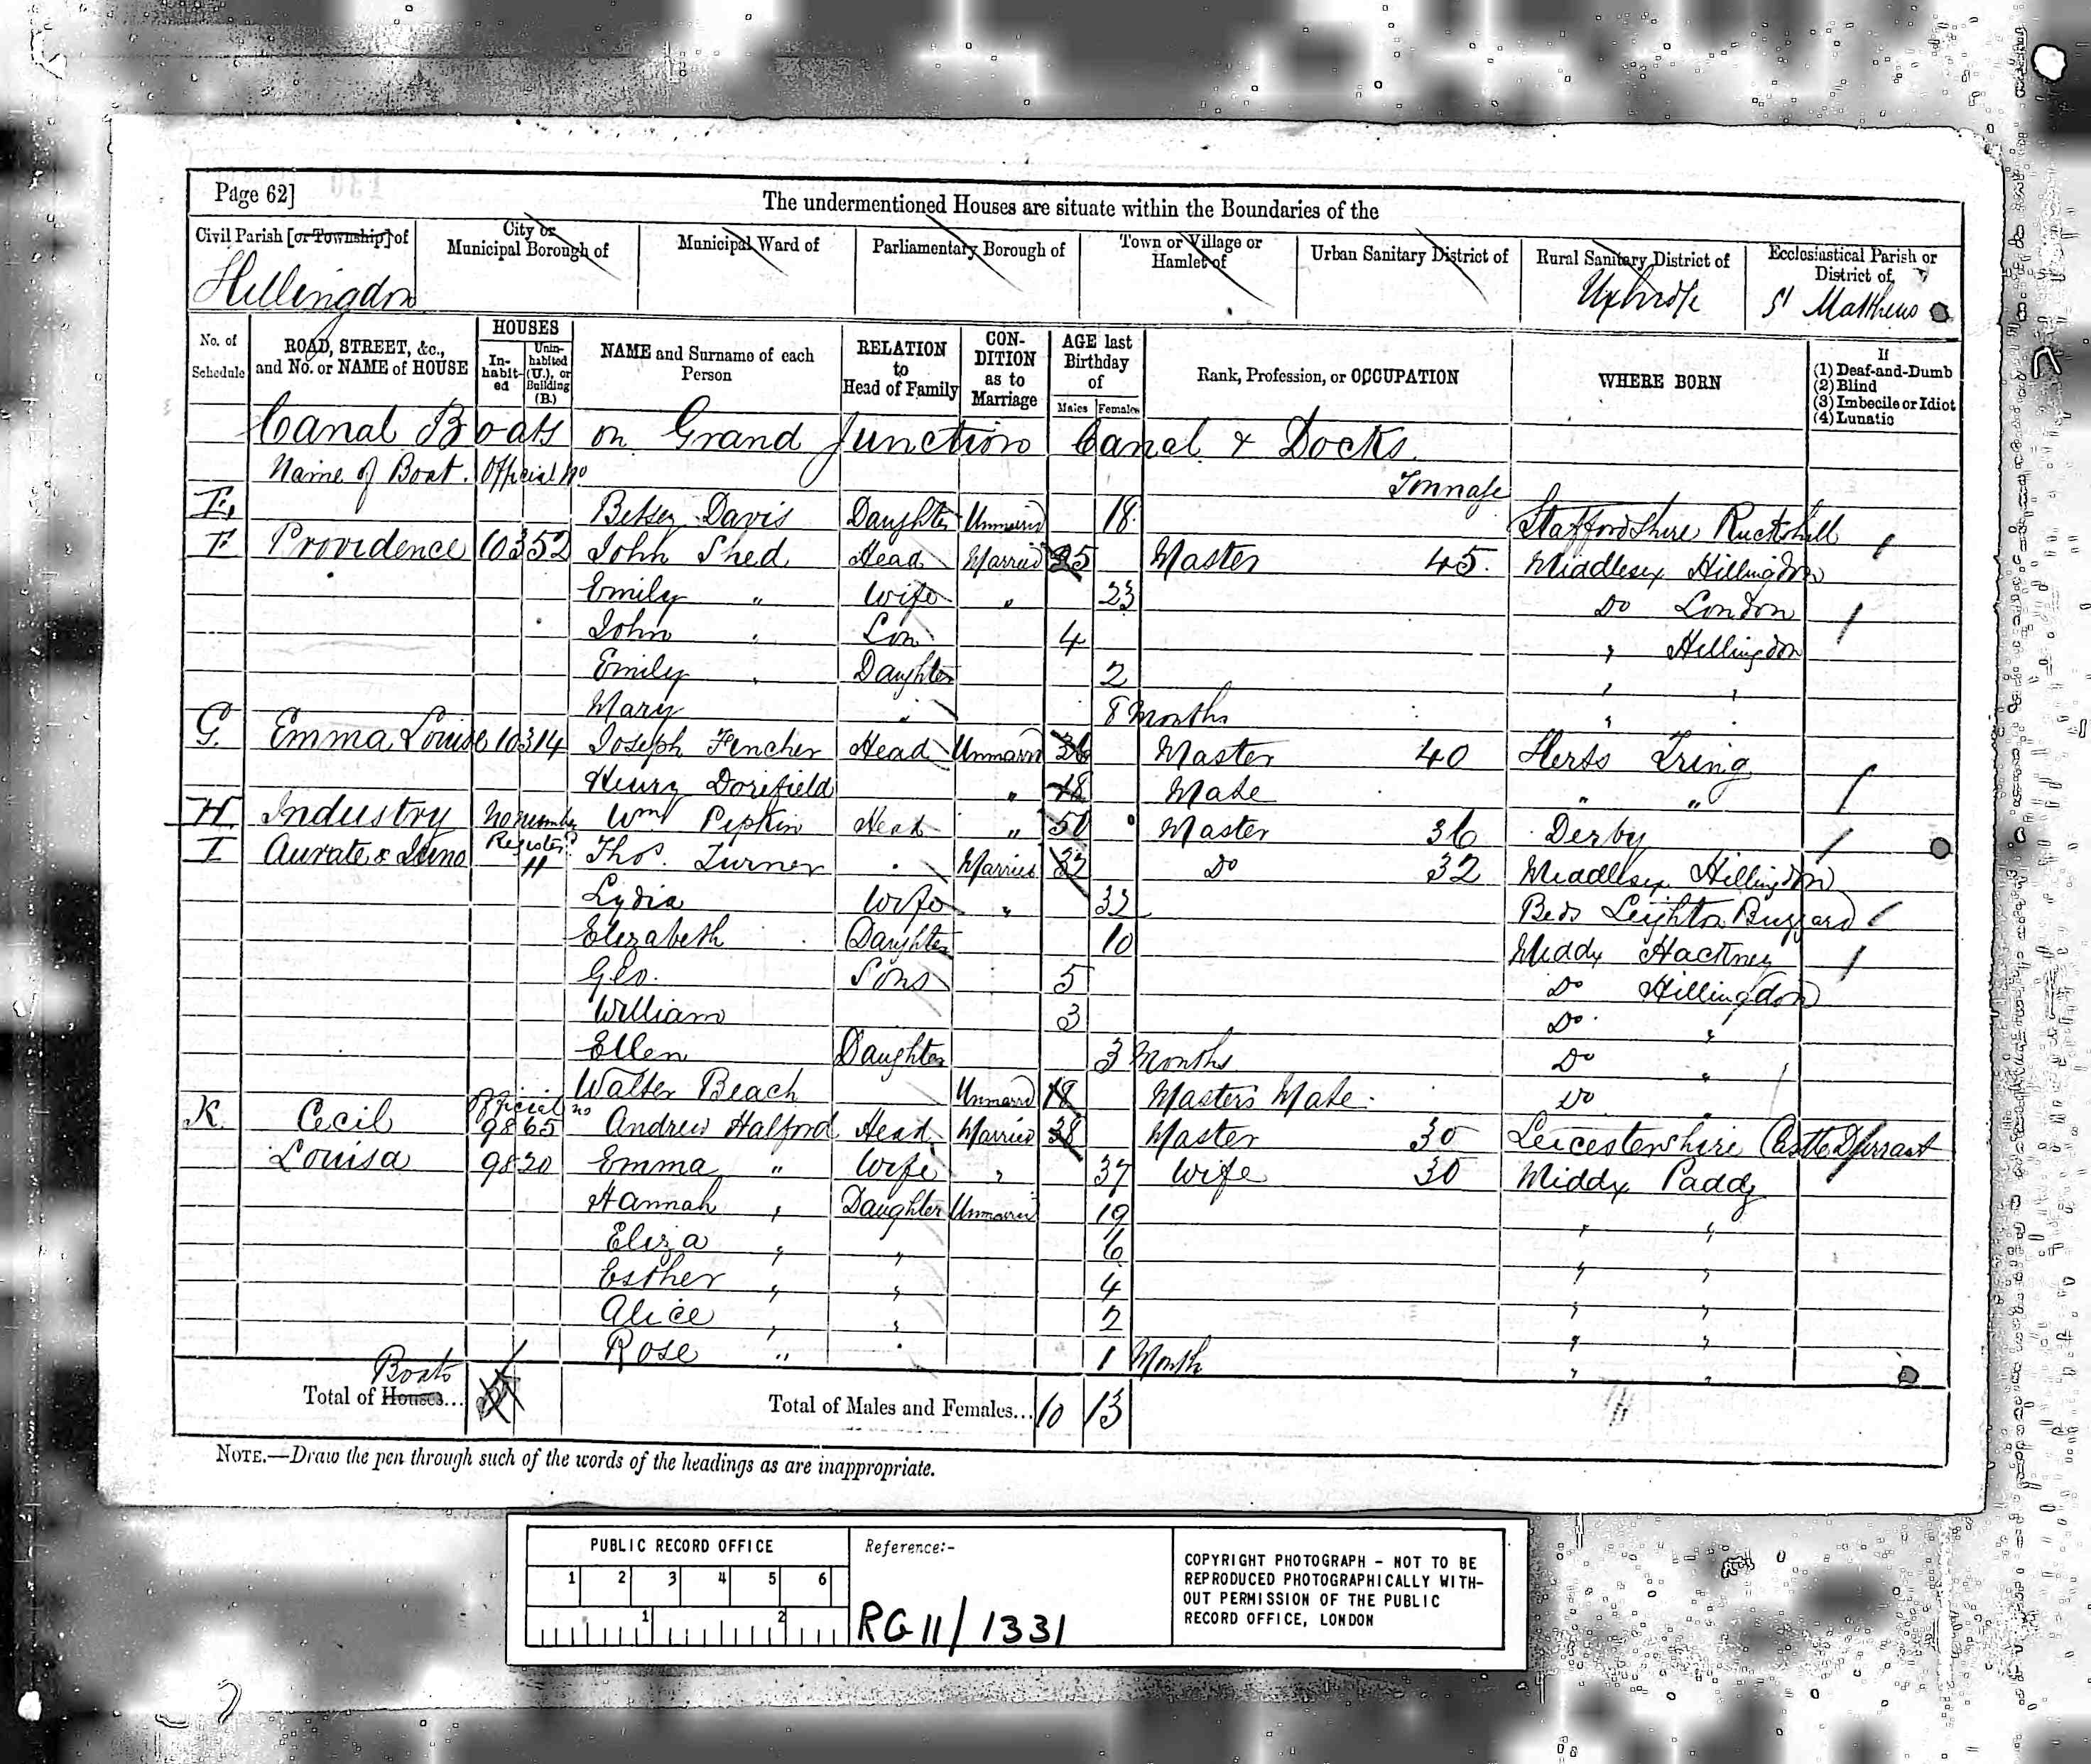 Page 62]
The undermentioned Houses are situate within the Boundaries of the
Civil Parish [or Township] of
City or Municipal Borough of
Municipal Ward of
Parliamentary Borough of
Town or Village or Hamlet of
Urban Sanitary District of
Rural Sanitary District of
Ecclesiastical Parish or District of
Hillingdon Uxbridge St Matthews
No. of Schedule
ROAD, STREET, &c., and No. or NAME of HOUSE
HOUSES
In-habit-ed
Unin-habited (U.), or Building (B.)
NAME and Surname of each Person
RELATION to Head of Family
CON-DITION as to Marriage
AGE last Birthday of
Males Females
Rank, Profession, or OCCUPATION
WHERE BORN
If
(1) Deaf-and-Dumb
(2) Blind
(3) Imbecile or Idiot
(4) Lunatic
Canal Boats on Grand Junction Canal & Docks
Name of Boat. Official No Tonnage
E, Betsey Davis Daughter Unmarrid 18 Staffordshire
F Providence 10352 John Shed Head Married 25 Master 45. Middlesex Hillingdon
Emily " Wife " 23 Do London
John " Son 4 " Hillingdon
Emily " Daughter 2 " "
Mary " 8 Months "
G. Emma Louise 10314 Joseph Fencher Head Unmarrd 36 Master 40 Herts Tring
Henry Dorifield " 18 Mate " "
H Industry No number Wm Pipkin Head " 50 Master 36 Derby
I Registerd " Thos. Turner " Married 32 Do 32 Middlesex Hillingdon
Lydia Wife " 32 Beds Leighton Buzzard
Elizabeth Daughter 10 Middx Hackney
Geo. Sons 5 Do Hillingdon
William 3 Do "
Ellen Daughter 3 Months Do "
Walter Beach Unmarrd 18 Masters Mate. Do "
K. Cecil Official no 9865 Andrew Halford Head Married 38 Master 30 Leicestershire Castle
Louisa 9820 Emma " Wife " 37 Wife 30 Middx Paddg
Hannah " Daughter Unmarrid 19 " "
Eliza " " 6 " "
Esther " " 4 " "
Alice " " 2 " "
Rose " " 1 Month " "
Boats
Total of Houses...
Total of Males and Females... 10 13
NOTE.—Draw the pen through such of the words of the headings as are inappropriate.
PUBLIC RECORD OFFICE
1 2 3 4 5 6
1 2
Reference:-
RG 11/1331
COPYRIGHT PHOTOGRAPH - NOT TO BE
REPRODUCED PHOTOGRAPHICALLY WITH-
OUT PERMISSION OF THE PUBLIC
RECORD OFFICE, LONDON